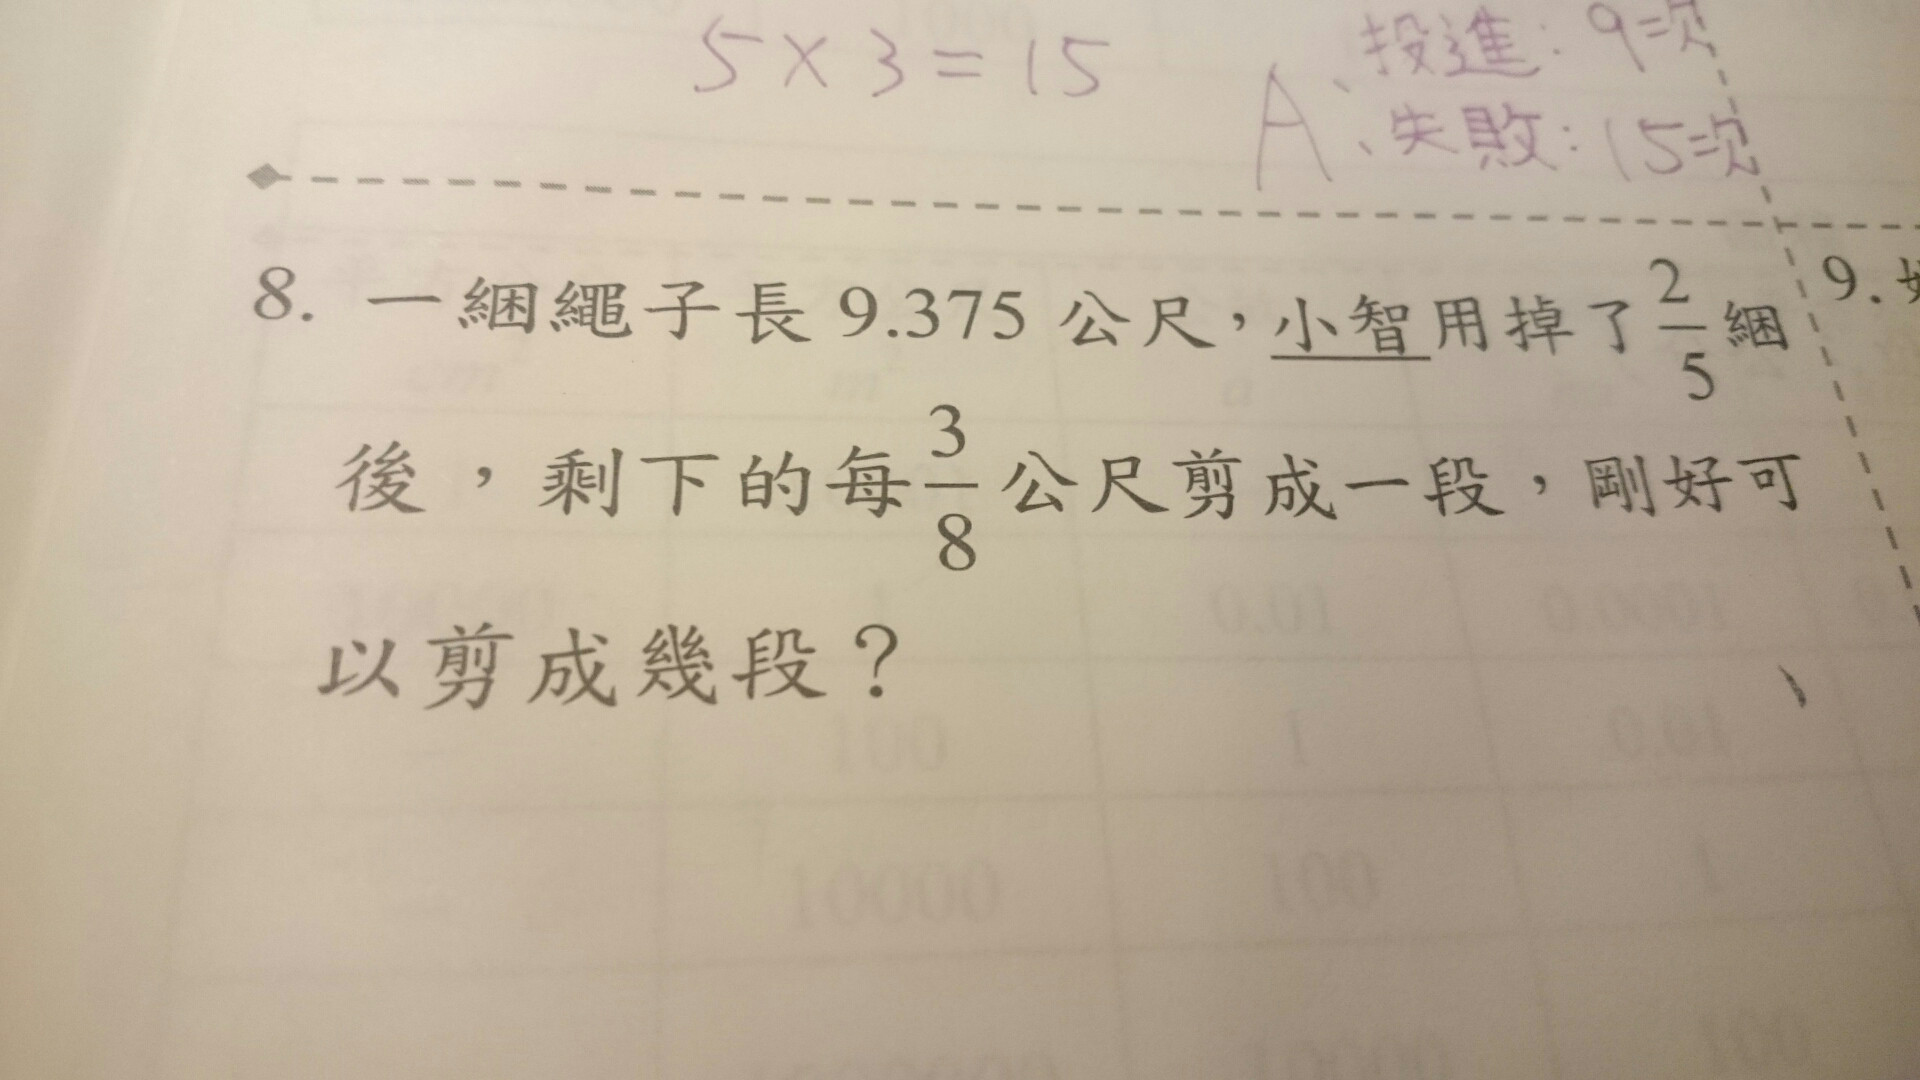 5 × 3 = 15
A、投進：9次
、失敗：15次
8. 一綑繩子長 9.375 公尺，小智用掉了 2/5 綑
後，剩下的每 3/8 公尺剪成一段，剛好可
以剪成幾段？
9.